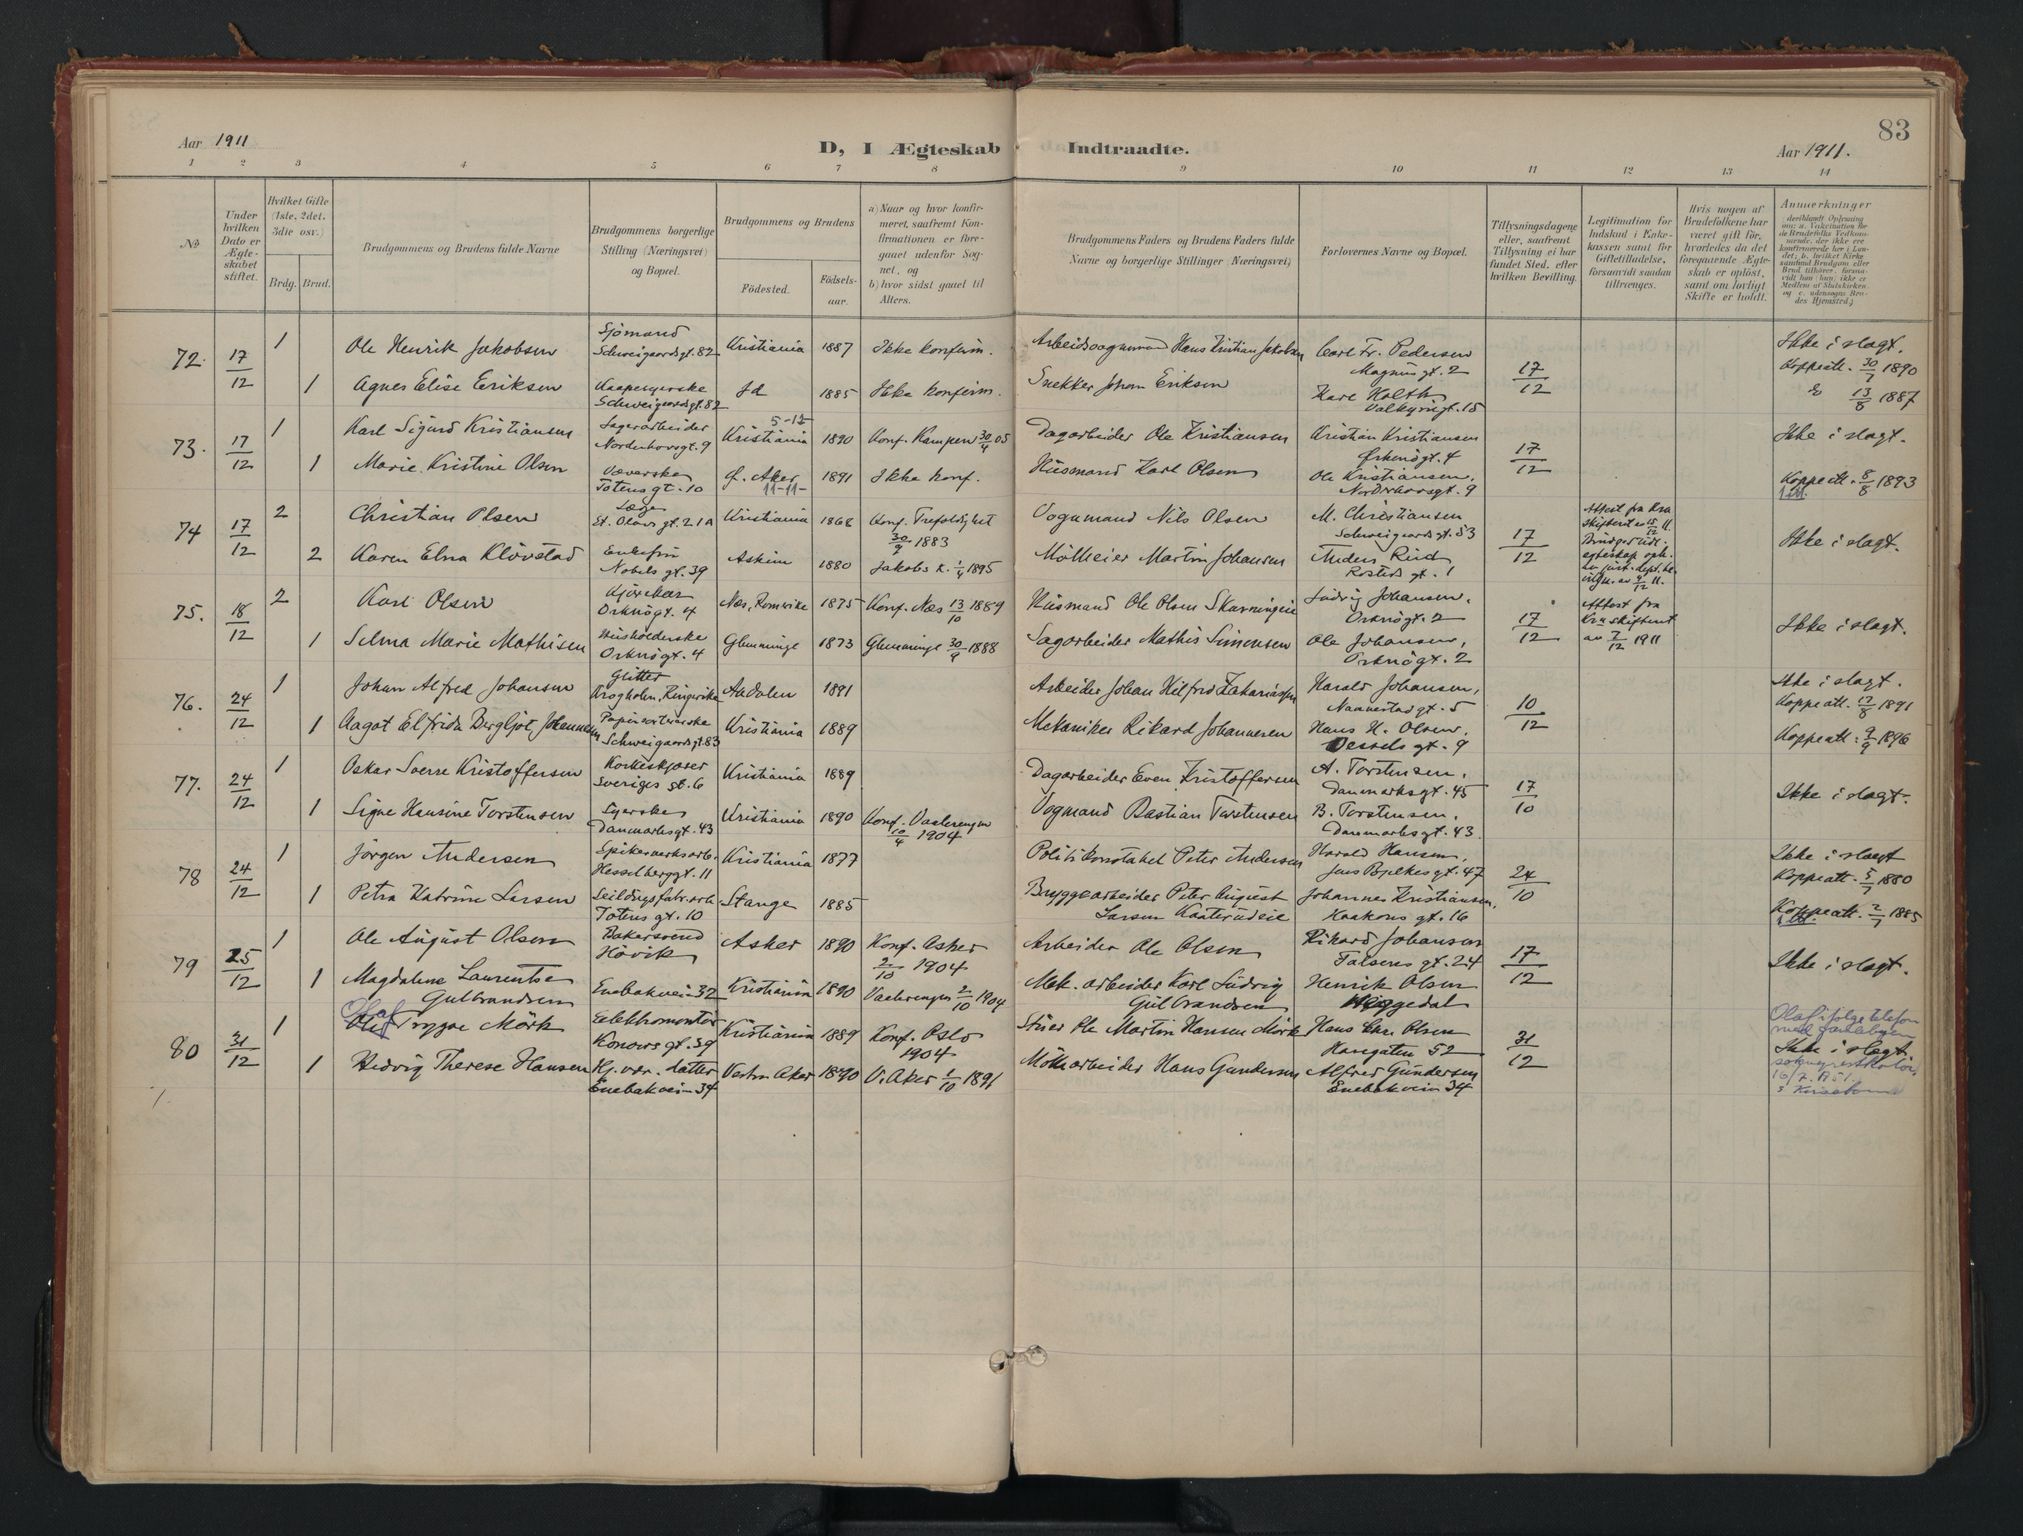 83
Aar 1911
D, I Ægteskab Indtraadte.
Aar 1911.
1 2 3 4 5 6 7 8 9 10 11 12 13 14
№
Under hvilken Dato er Ægteskabet stiftet.
Hvilket Gifte (1ste, 2det, 3die osv.)
Brdg. Brud.
Brudgommens og Brudens fulde Navne
Brudgommens borgerlige Stilling (Næringsvei) og Bopæl.
Brudgommens og Brudens
Fødested. Fødselsaar.
a) Naar og hvor konfirmeret, saafremt Konfirmationen er foregaaet udenfor Sognet, og
b) hvor sidst gaaet til Alters.
Brudgommens Faders og Brudens Faders fulde Navne og borgerlige Stillinger (Næringsvei)
Forlovernes Navne og Bopæl.
Tillysningsdagene eller, saafremt Tillysning ei har fundet Sted, efter hvilken Bevilling.
Legitimation for Indskud i Enkekassen samt for Giftetilladelse, forsaavidt saadan tiltrænges.
Hvis nogen af Brudefolkene har været gift før, hvorledes da det foregaaende Ægteskab er opløst, samt om lovligt Skifte er holdt.
Anmerkninger
72. 17/12 1 Ole Henrik Jakobsen Sjömand Schweigaardsgt. 82 Kristiania 1887 Ikke konfirm. Hans Kristian Jakobsen Carl Fr. Pedersen Magnusgt. 2 17/12 Ikke i slægt. Koppeatt. 30/7 1890
1 Agnes Elise Eriksen Schweigaardsgt. 82 Id 1885 Ikke konfirm. Snekker Johan Eriksen Karl Holth Valkyriegt. 15 13/8 1887
73. 17/12 1 Karl Sigurd Kristiansen Lagerarbeider Nordenhovsgt. 9 5-12 Kristiania 1890 Konf. Kampen 30/4 05 Dagarbeider Ole Kristiansen Kristian Kristiansen Orknögt. 4 17/12 Ikke i slægt.
1 Marie Kristine Olsen Væverske Totensgt. 10 Ø. Aker 11-11- 1891 Ikke konf. Husmand Karl Olsen Ole Kristiansen, Norderhovsgt. 9 Koppeatt. 8/8 1893
74 17/12 2 Christian Olsen Læge St. Olavs gt. 21A Kristiania 1868 Konf. Trefoldighet 30/9 1883 Vognmand Nils Olsen M. Christiansen Schweigaardsgt. 53 17/12 Attest fra Kra skifteret 15/12 11. Ikke i slægt.
2 Karen Elna Klövstad Enkefru Nobels gt. 39 Askim 1880 Jakobs K. 1/4 1895 Martin Johansen Anders Rud Rosteds gt. 1
75. 18/12 2 Karl Olsen Orknögt. 4 Næs, Romerike 1875 Konf. Næs 13/10 1889 Husmand Ole Olsen Ludvig Johansen, Orknögt. 2 17/12 Attest fra Kra skifteret av 7/12 1911 Ikke i slægt.
1 Selma Marie Mathisen Husholderske Orknögt. 4 Glemminge 1873 Glemminge 30/9 1888 Sagarbeider Mathis Simensen Ole Johansen, Orknögt. 2
76. 24/12 1 Johan Alfred Johansen Aadalen 1891 Arbeider Johan Hilfred Zakariassen Harald Johansen, Nannestadgt. 5 10/12 Ikke i slægt. Koppeatt. 17/8 1891
1 Aagot Elfrida Bergljot Johannesen Schweigaardsgt. 83 Kristiania 1889 Mekaniker Rikard Johannesen Hans H. Olsen, Wessels gt. 9 Koppeatt. 9/9 1896
77. 24/12 1 Oskar Sverre Kristoffersen Korkeskjærer Sveriges gt. 6 Kristiania 1889 Dagarbeider Even Kristoffersen A. Torstensen, Danmarksgt. 45 17/10 Ikke i slægt.
1 Signe Hansine Torstensen Syerske Danmarksgt. 43 Kristiania 1890 Konf. Vaalerengen 10/4 1904 Vognmand Bastian Torstensen B. Torstensen, Danmarksgt. 43
78 24/12 1 Jörgen Andersen Spikerverksarb. Hesselberggt. 11 Kristiania 1877 Politikonstabel Peter Andersen Harald Hansen, Jens Bjelkesgt. 47 24/10 Ikke i slægt Koppeatt. 5/7 1880
1 Petra Katrine Larsen Seildugsfabr. arb. Totens gt. 10 Stange 1885 Bryggearbeider Peter August Larsen Johannes Kristiansen, Haakons gt. 16 Koppeatt. 2/7 1885
79 25/12 1 Ole August Olsen Bakersvend Hövik Asker 1890 Konf. Asker 2/10 1904 Arbeider Ole Olsen Rikard Johansen gt. 24 17/12 Ikke i slægt.
1 Magdalene Laurentse Gulbrandsen Enebakvein 32 Kristiania 1890 Vaalerengen 2/10 1904 Mek. arbeider Karl Ludvig Gulbrandsen Henrik Olsen Heggedal
80 31/12 1 Olaf Trygve Mörk Elektromontör Konows gt. 39 Kristiania 1889 Konf. Oslo 1904 Ole Martin Hansen Mörk Hans Chr. Olsen Havgaten 52 31/12 Olaf ifölge telefon Ikke i slægt
1 Hedvig Therese Hansen Hj. vær. datter Enebakvein 34 Vestre Aker 1890 V. Aker 1/10 1891 Hans Gundersen Alfred Gundersen Enebakvein 34 16/7. 1951